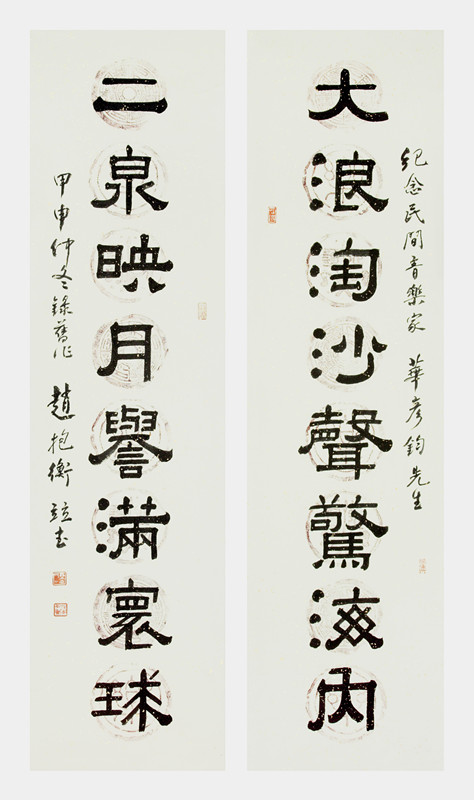 紀念民間音樂家 華彥鈞先生
大浪淘沙聲驚海内
二泉映月譽滿寰球
甲申仲冬錄舊作 趙抱衡竝書